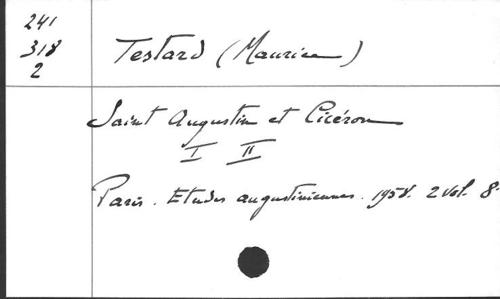 241
318
2
Testard (Maurice)
Saint Augustin et Cicéron
I II
Paris. Etudes augustiniennes. 1958. 2 vol. 8°